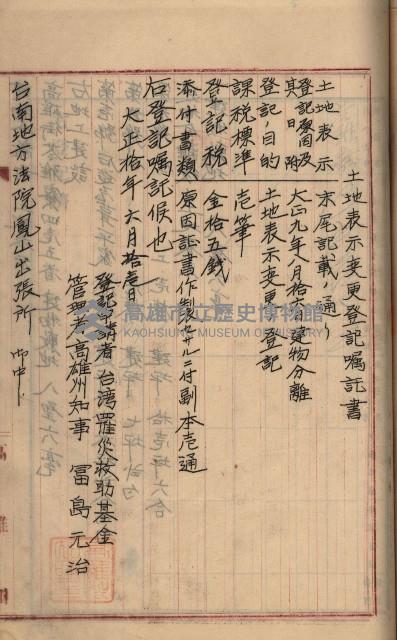 土地表示変更登記嘱託書
土地表示 末尾記載ノ通リ
登記原因及其日附 大正九年八月十六日建物分離
登記ノ目的 土地表示変更登記
課税標準 壱筆
登記税 金拾五銭
添付書類 原因証書作製セサルニ付副本壱通
右登記嘱託候也
大正拾年六月拾壱日
登記申請者 台湾罹災救助基金
管理者高雄州知事 富島元治
台南地方法院鳳山出張所 御中
高雄市立歷史博物館
KAOHSIUNG MUSEUM OF HISTORY